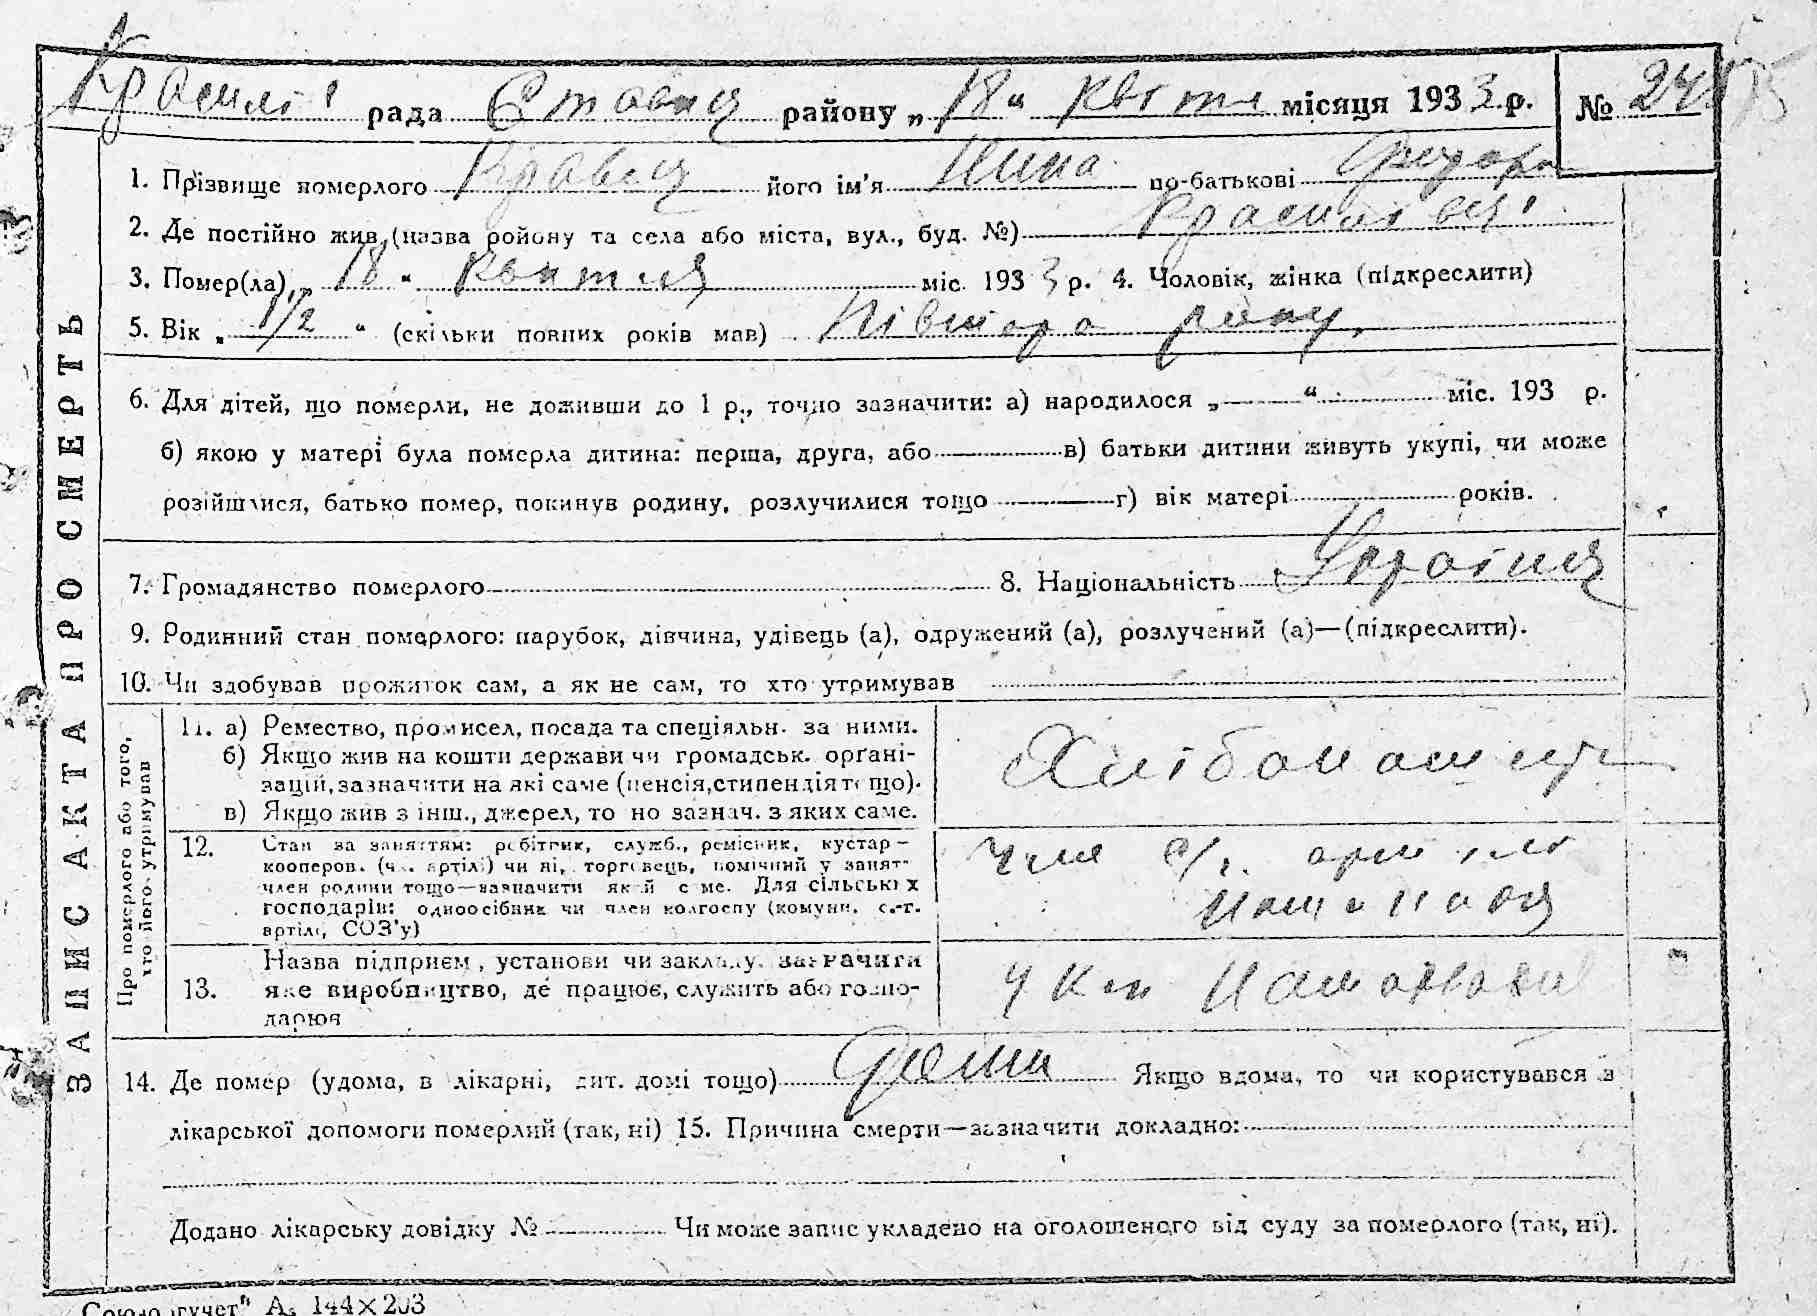 Красилі рада Ставищ району „18“ квітня місяця 1933 р. № 24
1. Прізвище померлого Кравец його ім'я Нина по-батькові Федора
2. Де постійно жив (назва району та села або міста, вул., буд. №)
3. Помер(ла) „18“ квитня міс. 1933 р. 4. Чоловік, жінка (підкреслити)
5. Вік „1/2“ (скільки повних років мав) Півтора року.
6. Для дітей, що померли, не доживши до 1 р., точно зазначити: а) народилося „ “ міс. 193 р.
б) якою у матері була померла дитина: перша, друга, або в) батьки дитини живуть укупі, чи може
розійшлися, батько помер, покинув родину, розлучилися тощо г) вік матері років.
7. Громадянство померлого 8. Національність Україн
9. Родинний стан померлого: парубок, дівчина, удівець (а), одружений (а), розлучений (а)—(підкреслити).
10. Чи здобував прожиток сам, а як не сам, то хто утримував
ЗАПИС АКТА ПРО СМЕРТЬ
Про померлого або того,
хто його утримував
11. а) Ремество, промисел, посада та спеціяльн. за ними.
б) Якщо жив на кошти держави чи громадськ. орґані-
зацій, зазначити на які саме (пенсія, стипендія тощо).
в) Якщо жив з інш., джерел, то но зазнач. з яких саме.
Хлібопашец
12. Стан за заняттям: робітник, служб., ремісник, кустар-
кооперов. (чл. артілі) чи ні, торговець, помічний у занят-
член родини тощо—зазначити який саме. Для сільських
господарів: одноосібник чи член колгоспу (комуни, с.-г.
артілі, СОЗ'у)
Член с/г. артілі
13. Назва підприєм., установи чи закладу, зазначити
яке виробництво, де працює, служить або госпо-
дарює
14. Де помер (удома, в лікарні, дит. домі тощо) Дома Якщо вдома, то чи користувався з
лікарської допомоги померлий (так, ні) 15. Причина смерти—зазначити докладно:
Додано лікарську довідку № Чи може запис укладено на оголошеного від суду за померлого (так, ні).
А. 144×203